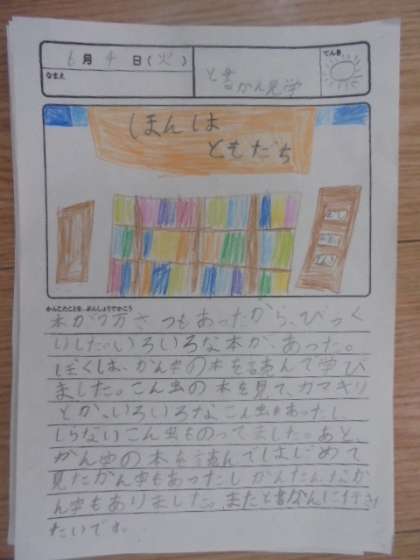 6月4日(火)
と書かん見学
てんき
なまえ
ほんは
ともだち
かんじたことを、ぶんしょうでかこう
本が7万さつもあったから、びっく
りした。いろいろな本が、あった。
ぼくは、かん字の本を読んで学び
ました。こん虫の本を見て、カマキリ
とか、いろいろなこん虫もあったし
しらないこん虫ものってました。あと、
かん字の本を読んではじめて
見たかん字もあったしかんたんなか
ん字もありました。またと書かんに行き
たいです。